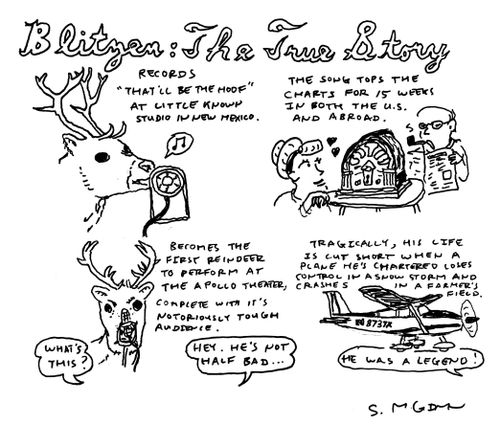 Blitzen: The True Story
RECORDS
"THAT'LL BE THE HOOF"
AT LITTLE KNOWN
STUDIO IN NEW MEXICO.
THE SONG TOPS THE
CHARTS FOR 15 WEEKS
IN BOTH THE U.S.
AND ABROAD.
BECOMES THE
FIRST REINDEER
TO PERFORM AT
THE APOLLO THEATER,
COMPLETE WITH IT'S
NOTORIOUSLY TOUGH
AUDIENCE.
WHAT'S
THIS?
HEY. HE'S NOT
HALF BAD...
TRAGICALLY, HIS LIFE
IS CUT SHORT WHEN A
PLANE HE'S CHARTERED LOSES
CONTROL IN A SNOW STORM AND
CRASHES IN A FARMER'S
FIELD.
HE WAS A LEGEND!
S.